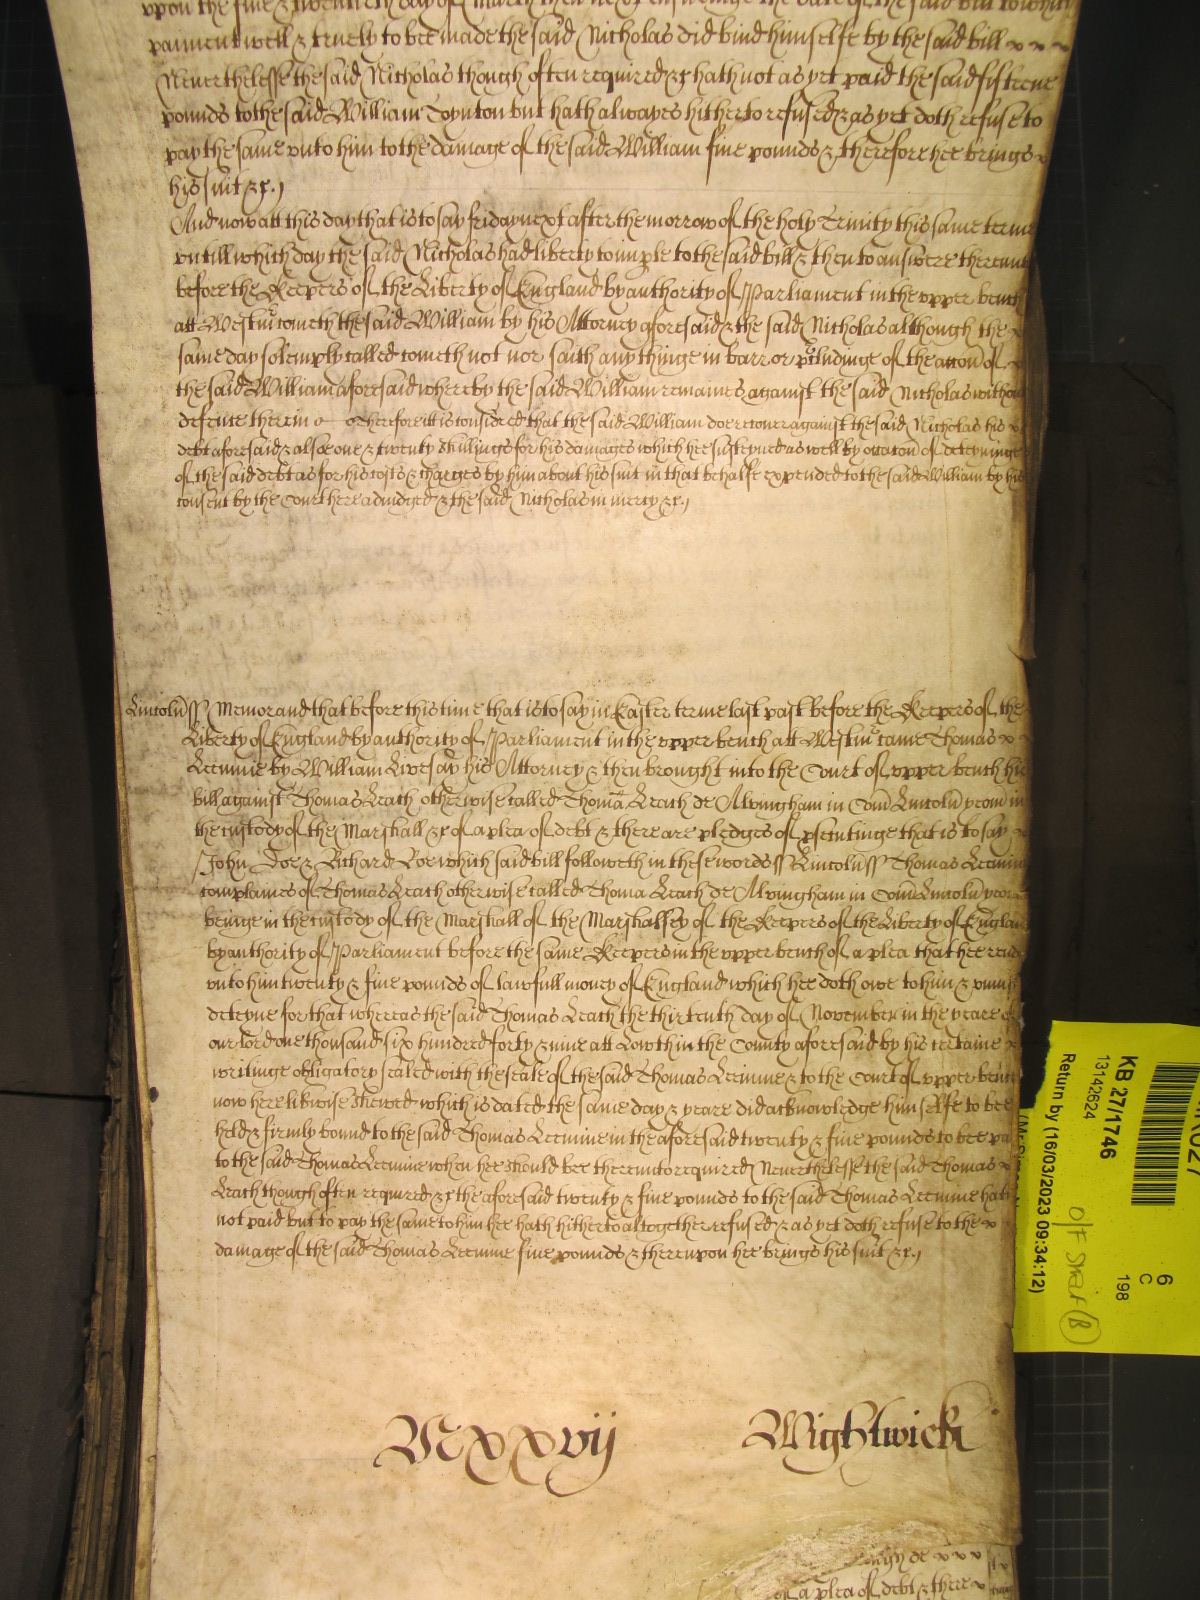 upon the five & twentieth day of March then next ensueinge the date of the said bill to which
paiment well & truely to bee made the said Nicholas did bind himselfe by the said bill
Neverthelesse the said Nicholas though often required &c hath not as yet paid the said fifteene
pounds to the said William Toynton but hath alwayes hitherto refused & as yet doth refuse to
pay the same unto him to the damage of the said William five pounds & therefore hee brings
his suit &c.
And now att this day that is to say friday next after the morrow of the holy Trinity this same terme
untill which day the said Nicholas had liberty to imple to the said bill & then to answere thereunto
before the Keepers of the Liberty of England by authority of Parliament in the upper bench
att Westmr cometh the said William by his Attorney aforesaid & the said Nicholas although the
same day solemply called cometh not nor saith any thinge in barr or pcludinge of the accon of
the said William aforesaid whereby the said William remaines against the said Nicholas without
defence therein Therefore itt is considered that the said William doe recover against the said Nicholas his
debt aforesaid & alsoe one & twenty shillings for his damages which hee susteyned as well by occacon of deteyninge
of the said debt as for his costs & charges by him about his suit in that behalfe expended to the said William by his
consent by the Court here adiudged & the said Nicholas in mercy &c.
Lincoln ss Memorand that before this time that is to say in Easter terme last past before the Keepers of the
Liberty of England by authority of Parliament in the upper bench att Westmr came Thomas
Leeminge by William Livesay his Attorney & then brought into the Court of upper bench his
bill against Thomas Leach otherwise called Thoma Leach de Alvingham in Com Lincoln yeom in
the custody of the Marshall &c of a plea of debt & there are pledges of psecutinge that is to say
John Doe & Richard Roe which said bill followeth in these words ss Lincoln ss Thomas Leeminge
complaines of Thomas Leach otherwise called Thoma Leach de Alvingham in Com Lincoln yeom
beinge in the custody of the Marshall of the Marshallsey of the Keepers of the Liberty of England
by authority of Parliament before the same Keepers in the upper bench of a plea that hee render
unto him twenty & five pounds of lawfull money of England which hee doth owe to him & uniustly
deteyne for that whereas the said Thomas Leach the thirteenth day of November in the yeare of
our lord one thousand six hundred forty & nine att Lowth in the County aforesaid by his certaine
writinge obligatory sealed with the seale of the said Thomas Leeminge & to the Court of upper bench
now here likwise shewed which is dated the same day & yeare did acknowledge him selfe to bee
held & firmly bound to the said Thomas Leeminge in the aforesaid twenty & five pounds to bee paid
to the said Thomas Leeminge when hee should bee thereunto required Neverthelesse the said Thomas
Leach though often required &c the aforesaid twenty & five pounds to the said Thomas Leeminge hath
not paid but to pay the same to him hee hath hitherto altogether refused & as yet doth refuse to the
damage of the said Thomas Leeminge five pounds & thereupon hee brings his suit &c.
Mxxvij Wightwick
of a plea of debt & there
KB 27/1746
13142624
Return by (16/03/2023 09:34:12)
6
C
198
off shelf (B)